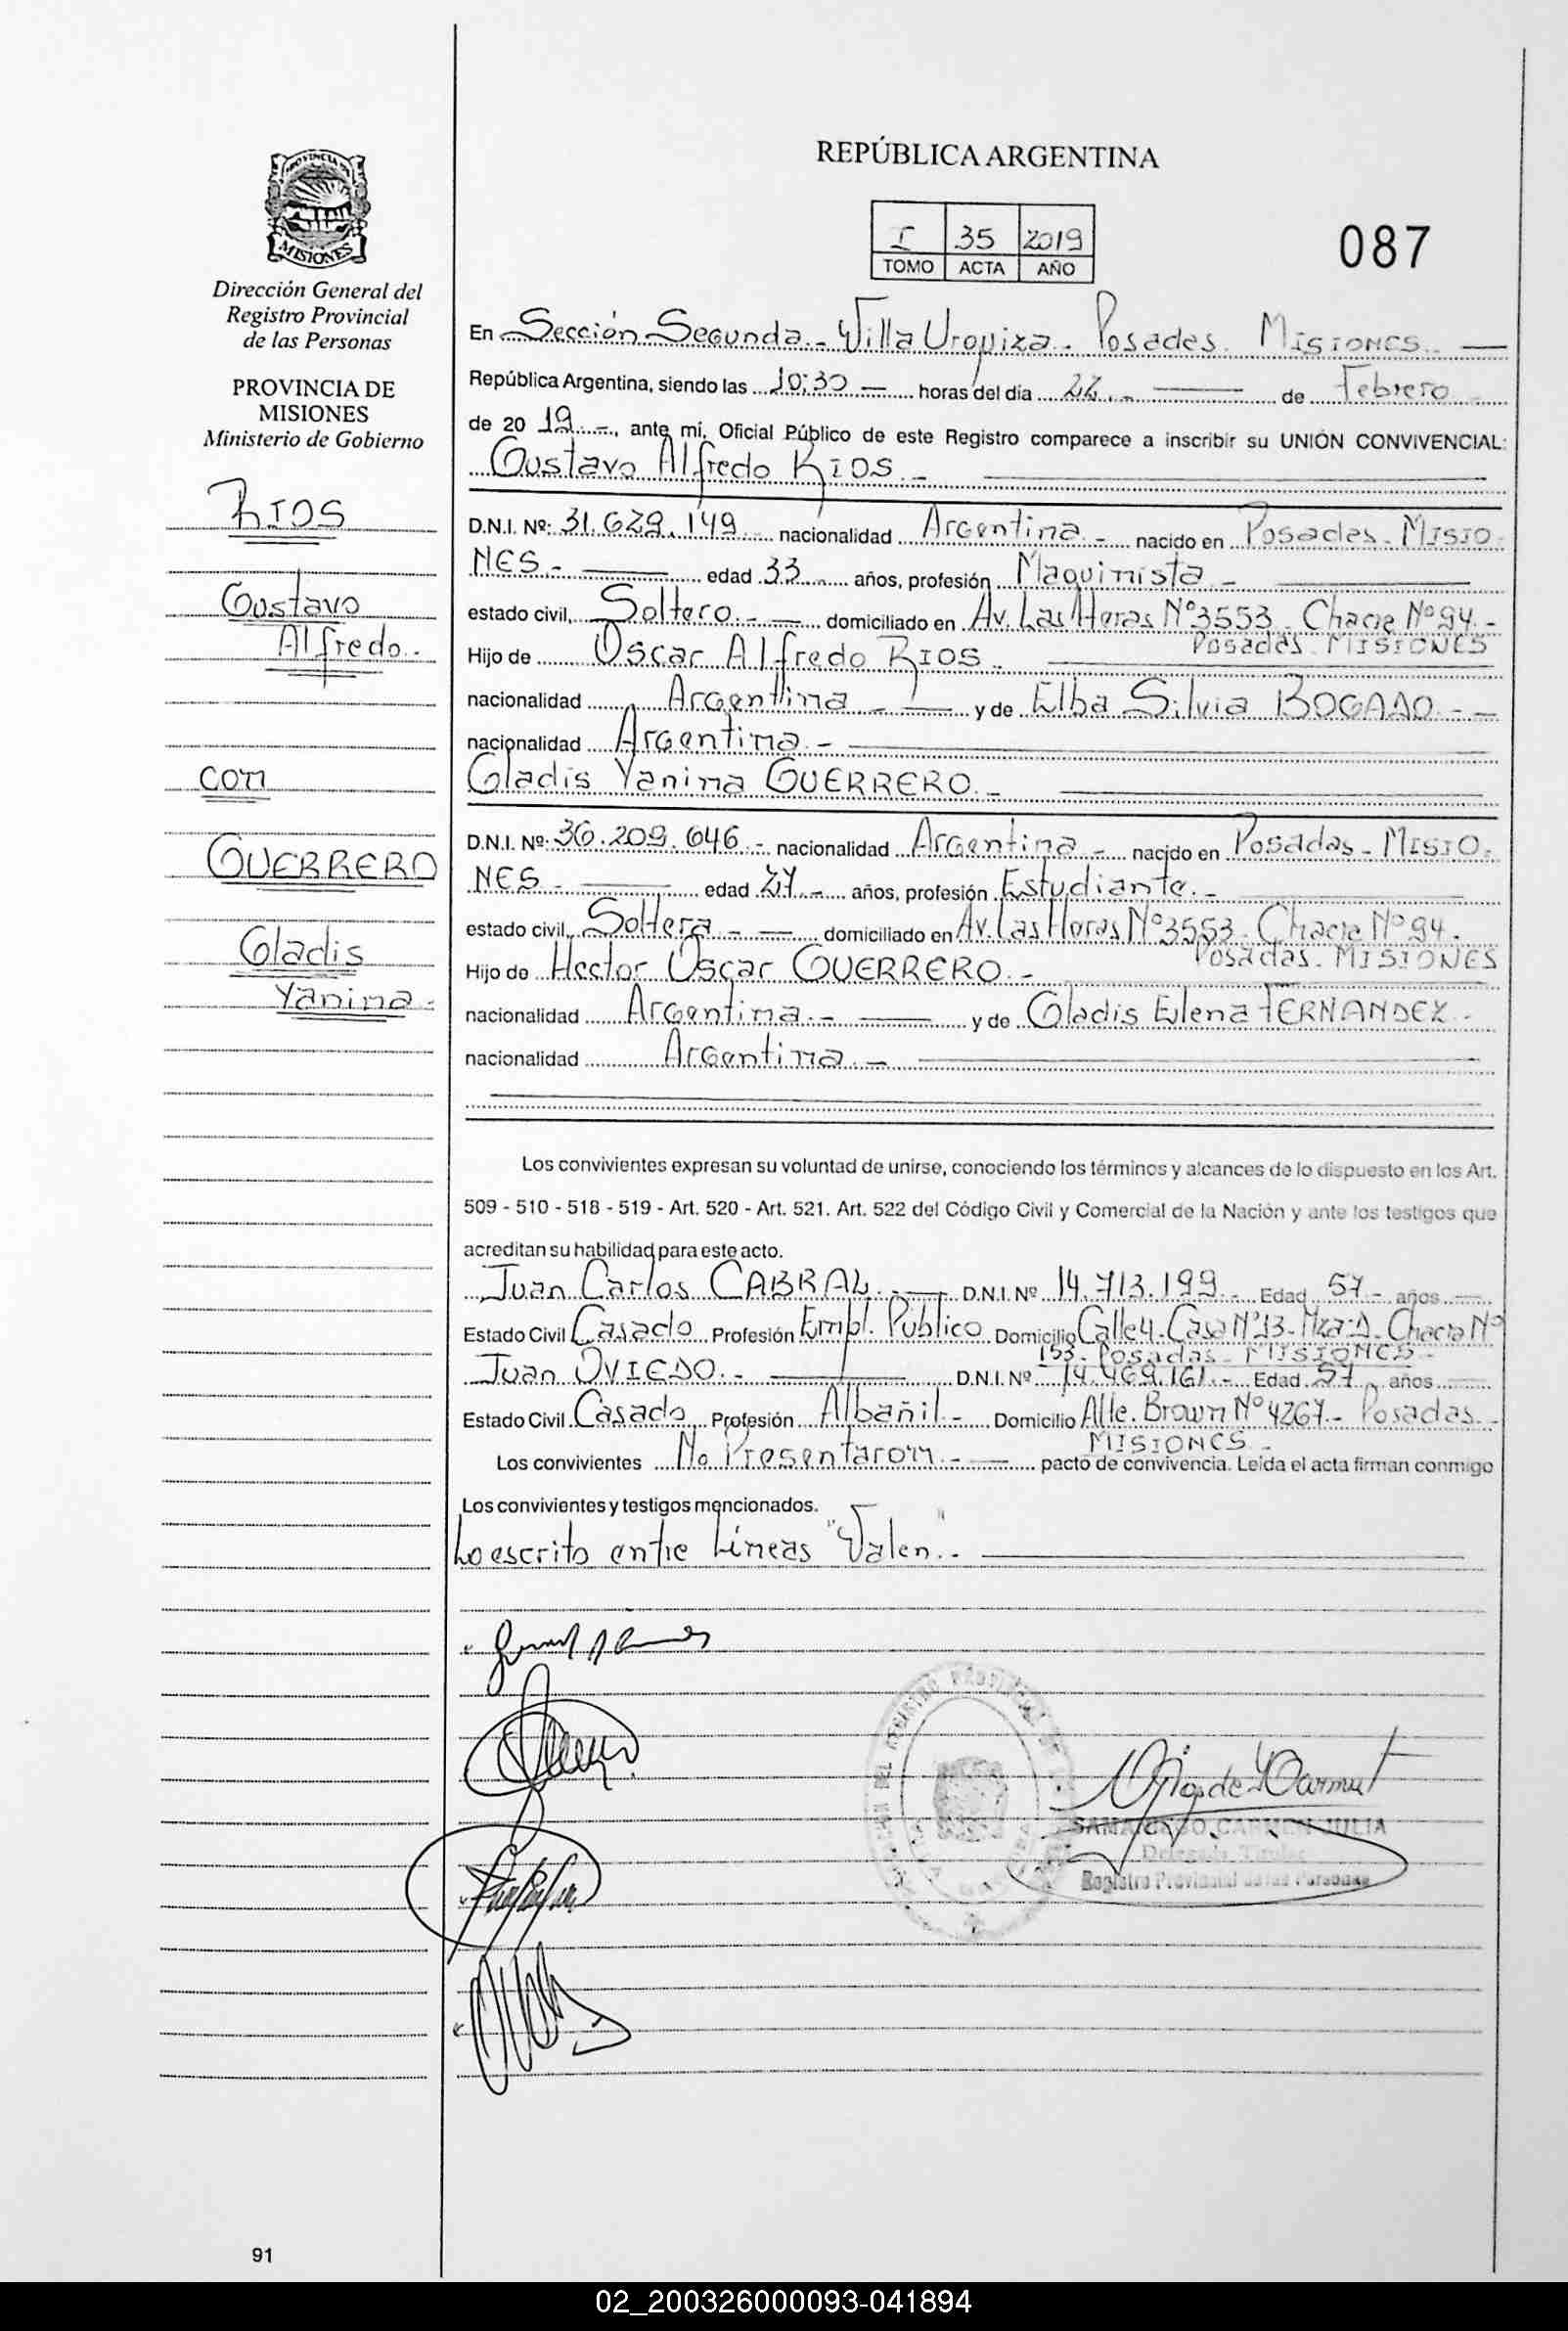 REPÚBLICA ARGENTINA
I 35 2019
TOMO ACTA AÑO
087
PROVINCIA DE
MISIONES
Dirección General del
Registro Provincial
de las Personas
PROVINCIA DE
MISIONES
Ministerio de Gobierno
RIOS
Gustavo
Alfredo.-
con
GUERRERO
Gladis
Yanina.-
En Sección Segunda.- Villa Urquiza. Posadas. MISIONES.-
República Argentina, siendo las 10:30 — horas del día 22.- de Febrero.-
de 20 19.-, ante mí, Oficial Público de este Registro comparece a inscribir su UNIÓN CONVIVENCIAL:
Gustavo Alfredo RIOS.-
D.N.I. Nº: 31.629.149.- nacionalidad Argentina.- nacido en Posadas. MISIO-
NES.- edad 33.- años, profesión Maquinista.-
estado civil, Soltero.- domiciliado en Av. Las Heras Nº3553. Chacra Nº94.-
Posadas. MISIONES
Hijo de Oscar Alfredo RIOS.-
nacionalidad Argentina.- y de Elba Silvia BOGADO.--
nacionalidad Argentina.-
Gladis Yanina GUERRERO.-
D.N.I. Nº: 36.209.646.- nacionalidad Argentina.- nacido en Posadas. MISIO-
NES.- edad 27.- años, profesión Estudiante.-
estado civil, Soltera.- domiciliado en Av. Las Heras Nº3553. Chacra Nº94.
Posadas. MISIONES
Hijo de Hector Oscar GUERRERO.-
nacionalidad Argentina.- y de Gladis Eulena FERNANDEZ.-
nacionalidad Argentina.-
Los convivientes expresan su voluntad de unirse, conociendo los términos y alcances de lo dispuesto en los Art.
509 - 510 - 518 - 519 - Art. 520 - Art. 521. Art. 522 del Código Civil y Comercial de la Nación y ante los testigos que
acreditan su habilidad para este acto.
Juan Carlos CABRAL.- D.N.I. Nº 14.713.199.- Edad 57- años
Estado Civil Casado Profesión Empl. Público Domicilio Calle 4. Casa Nº13-Mza:A. Chacra Nº
153. Posadas. MISIONES.-
Juan OVIEDO.- D.N.I. Nº 14.469.161.- Edad 57- años
Estado Civil Casado Profesión Albañil.- Domicilio Alte. Brown Nº4267.- Posadas.-
MISIONES.-
Los convivientes No Presentaron.- pacto de convivencia. Leída el acta firman conmigo
Los convivientes y testigos mencionados.
Lo escrito entre Líneas "Valen".-
SAMANIEGO CARMEN JULIA
Delegada Titular
Registro Provincial de las Personas
91
02_200326000093-041894